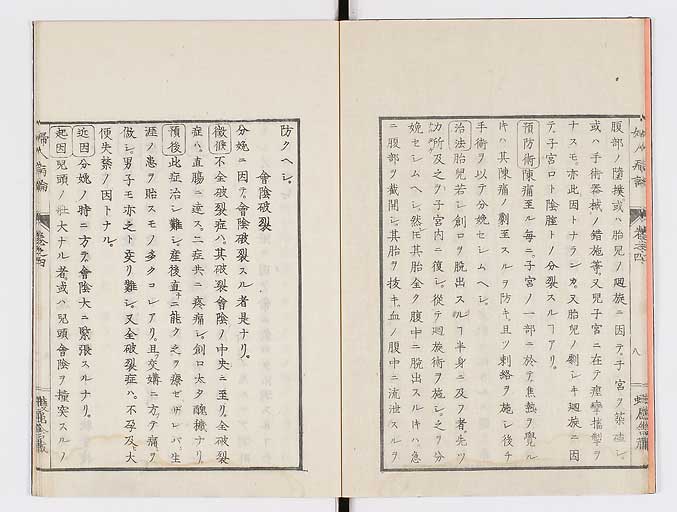 腹部ノ墮撲或ハ胎兒ノ廻旋ニ因テ子宮ヲ築磕シ
或ハ手術器械ノ錯施等又兒子宮ニ在テ痙攣搐掣ヲ
ナスモ亦此因トナランカ又胎兒ノ劇シキ廻旋ニ因
テ子宮口ト陰腟トノ分裂スルヿアリ
預防術陳痛至ル毎ニ子宮ノ一部ニ於テ焦熱ヲ覺ル
キハ其陳痛ノ劇至スルヲ防キ且ツ刺絡ヲ施シ後チ
手術ヲ以テ分娩セシムヘシ
治法胎兒若シ創口ヲ脱出スルヿ半身ニ及フ者先ツ
力所及之ヲ子宮内ニ復シ從テ廻旋術ヲ施シ之ヲ分
娩セシムヘシ然𪜈其胎全ク腹中ニ脱出スルキハ急
ニ腹部ヲ截開シ其胎ヲ抜キ血ノ腹中ニ流泄スルヲ
婦人病論
卷之四
八
防クヘシ
會陰破裂
分娩ニ因テ會陰破裂スル者是ナリ
徴候不全破裂症ハ其破裂會陰ノ中央ニ至リ全破裂
症ハ直腸ニ達ス二症共ニ疼痛シ創口太タ醜穢ナリ
預後此症治シ難シ産後直ニ能ク之ヲ療セザレバ生
涯ノ患ヲ貽スモノ多クコレアリ且交媾ニ方テ痛ヲ
做シ男子モ亦之ト交リ難シ又全破裂症ハ不孕及大
便失禁ノ因トナル
近因分娩ノ時ニ方テ會陰大ニ緊張スルナリ
起因兒頭ノ壯大ナル者或ハ兒頭會陰ヲ撞突スルノ
婦人病論
卷之四